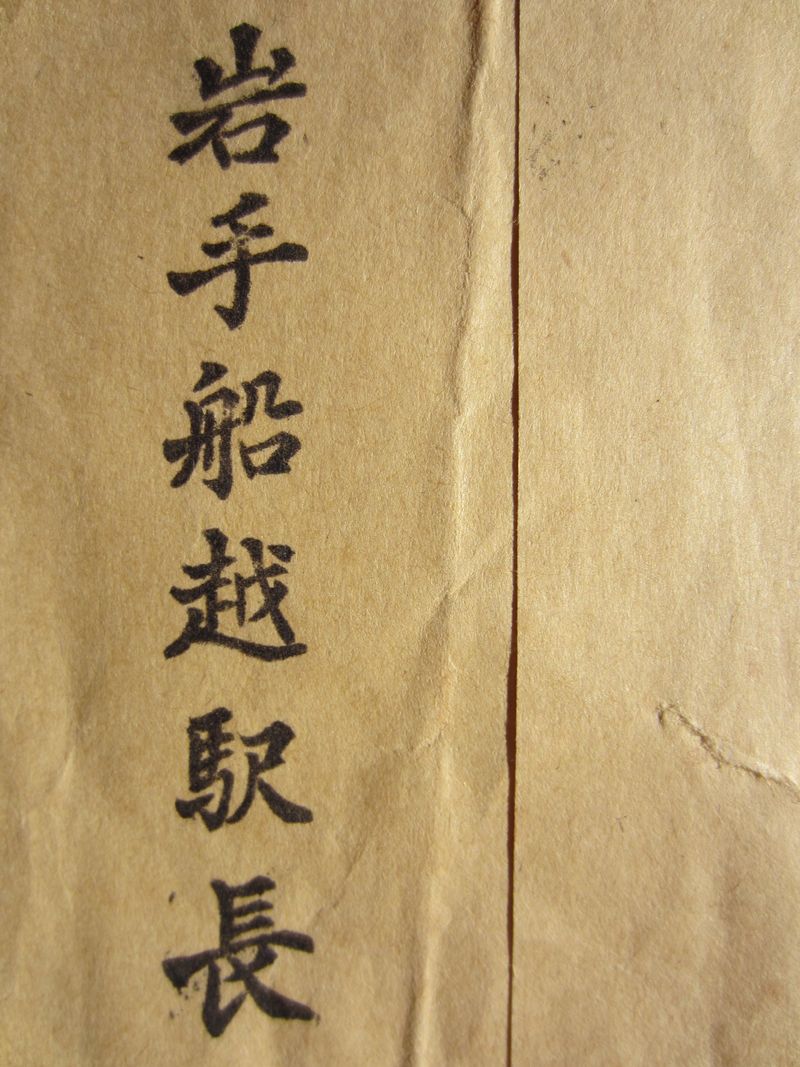 岩手船越駅長